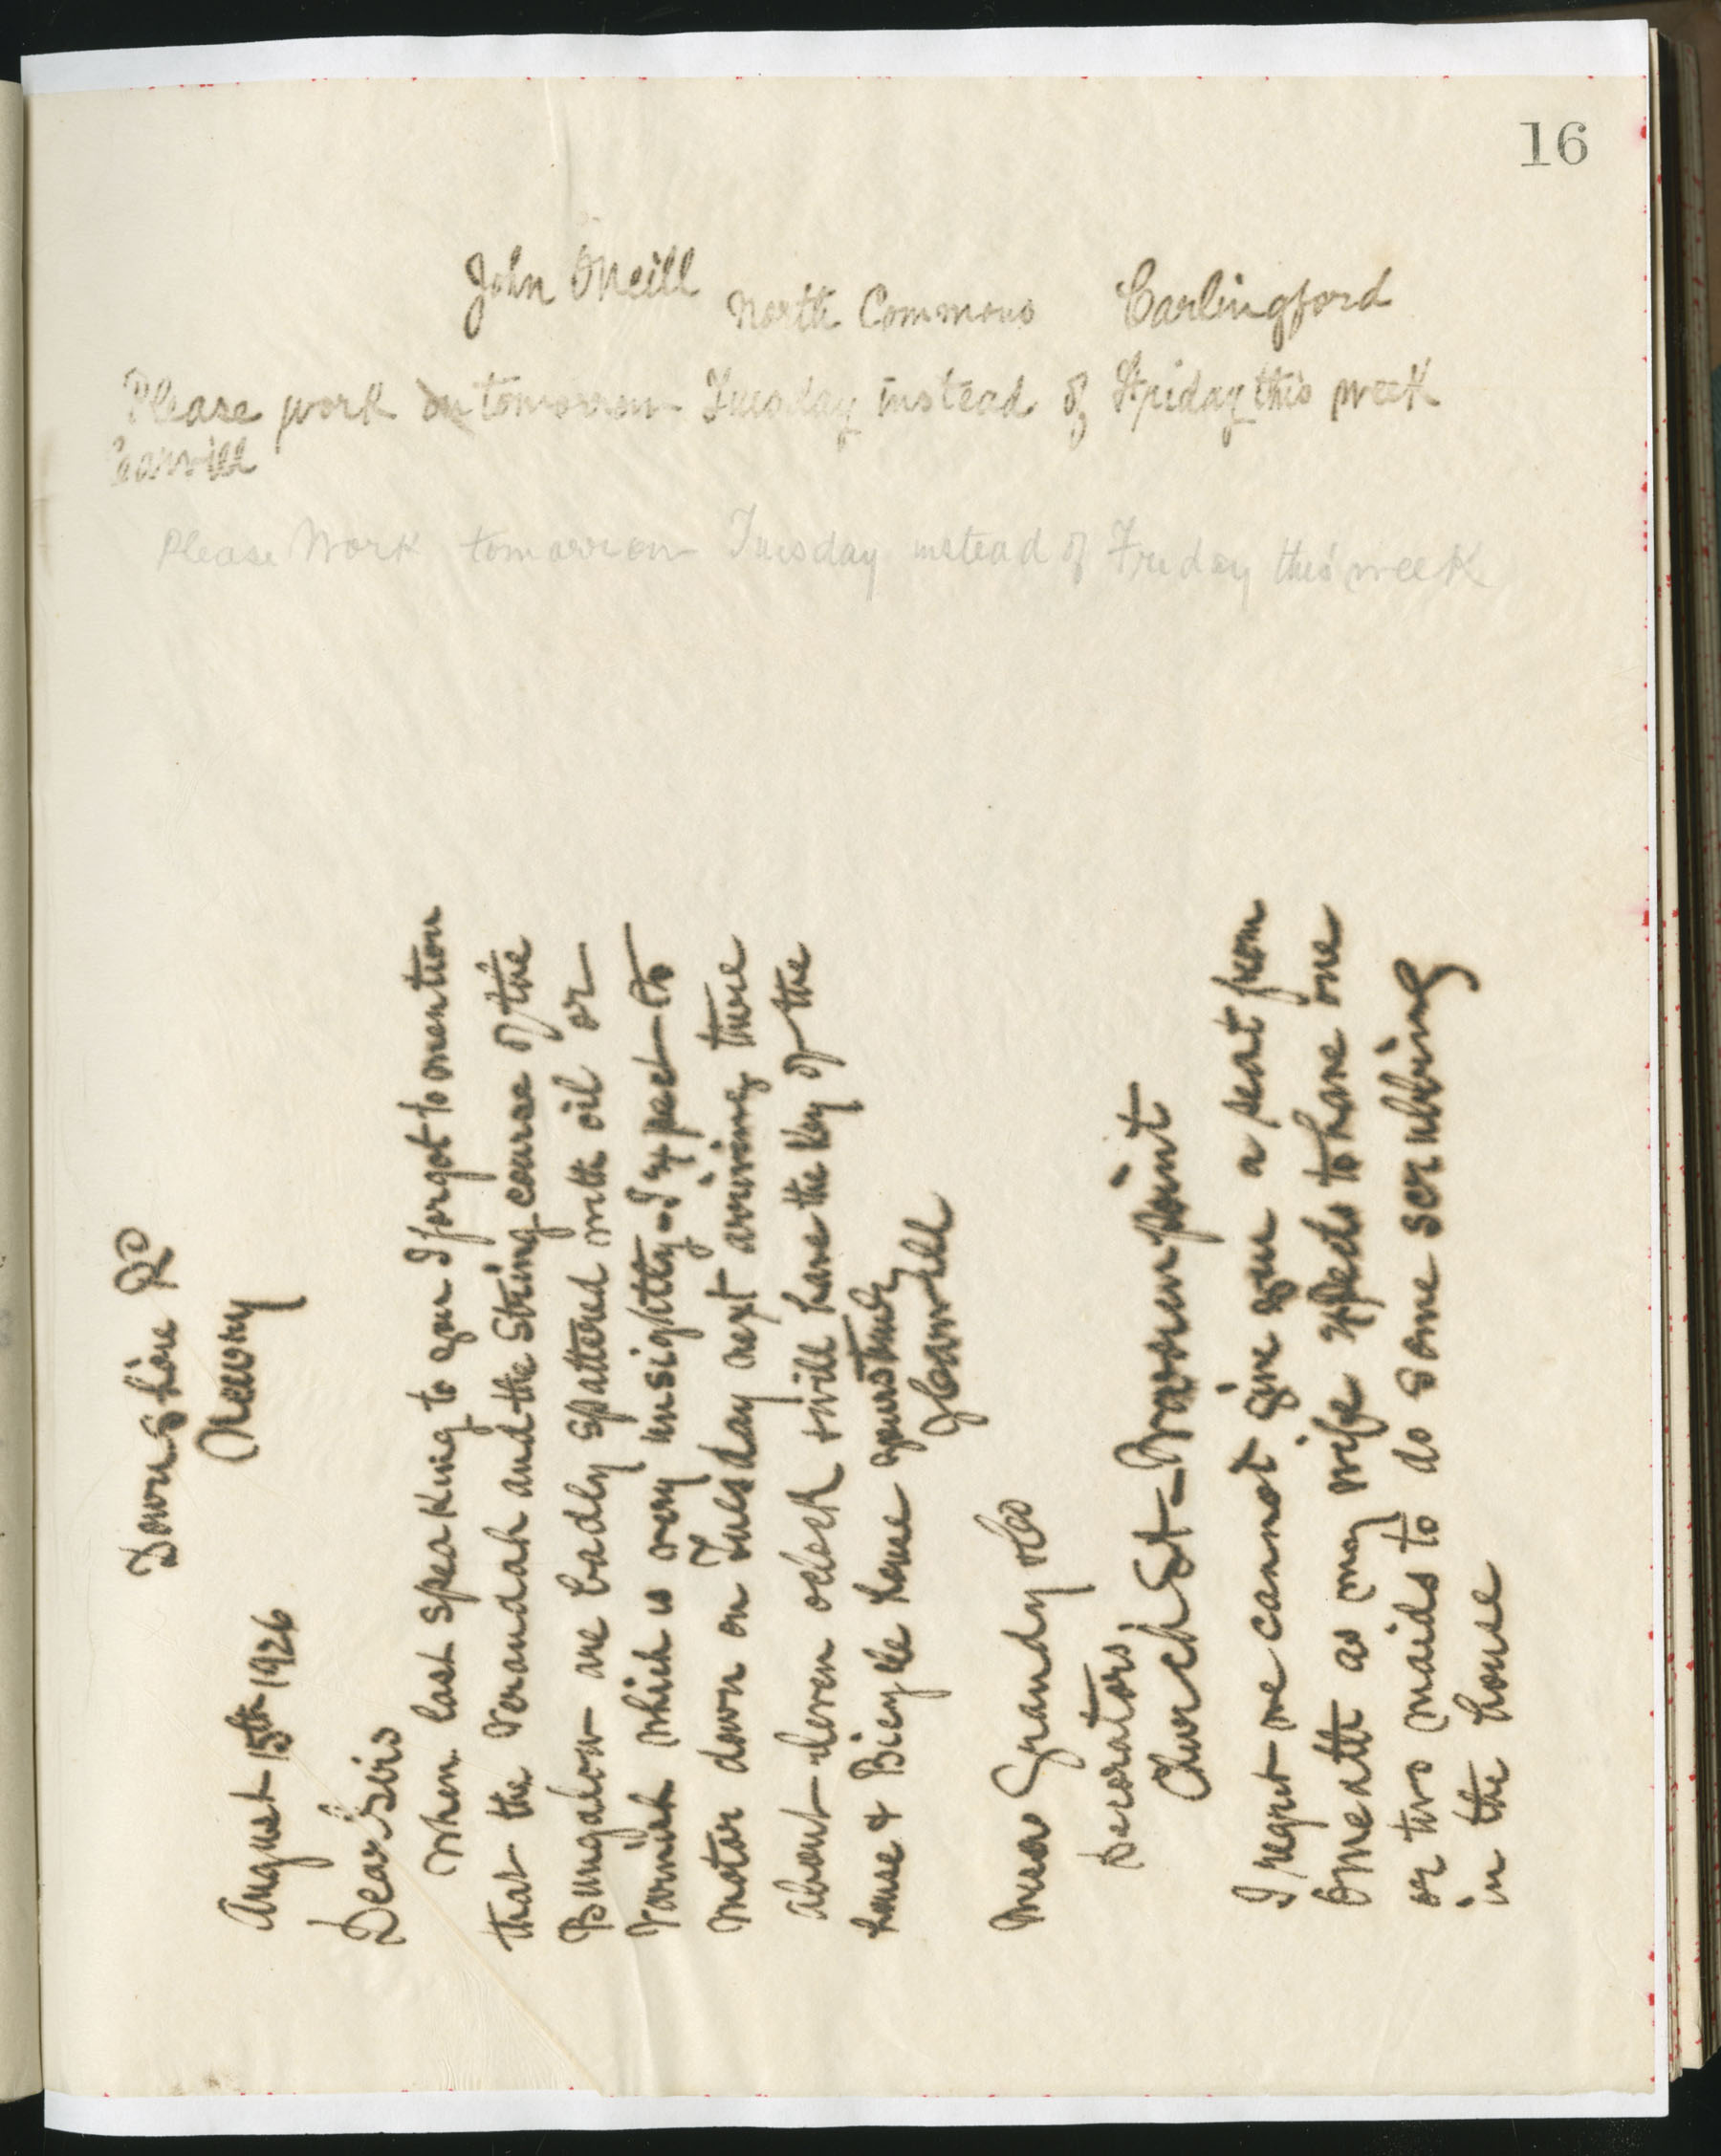 16
John O'Neill North Commons Carlingford
Please work on tomorrow Tuesday instead of Friday this week
Carvill
Please Work tomorrow Tuesday instead of Friday this week
Downshire Rd
Newry
August 15th 1926
Dear Sirs
When last speaking to you I forgot to mention
that the Verandah and the String course of the
Bungalow are badly spattered with oil or
Varnish which is very unsightly - I expect to
motor down on Tuesday next arriving there
about eleven oclock & will have the key of the
house & Bicycle house yours truly
J Carvill
Messrs Grandy & Co
Decorators
Church St - Warrenpoint
I regret we cannot give you a seat from
Omeath as my wife expects to have one
or two maids to do some scrubbing
in the house